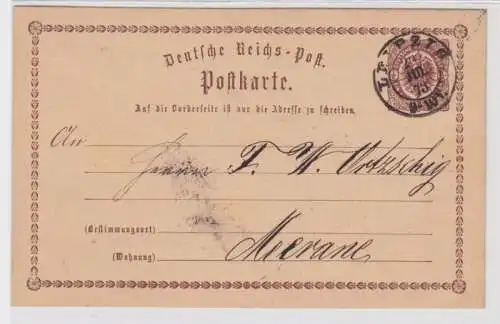 Deutsche Reichs-Post.
Postkarte.
LEIPZIG
JUL
73
Auf die Vorderseite ist nur die Adresse zu schreiben.
An
Herrn F. W.
(Bestimmungsort) Meerane
(Wohnung)